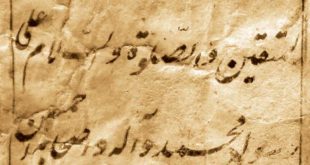 للمتقین والصلوة والسلام علی
محمد وآله واصحابه اجمعین